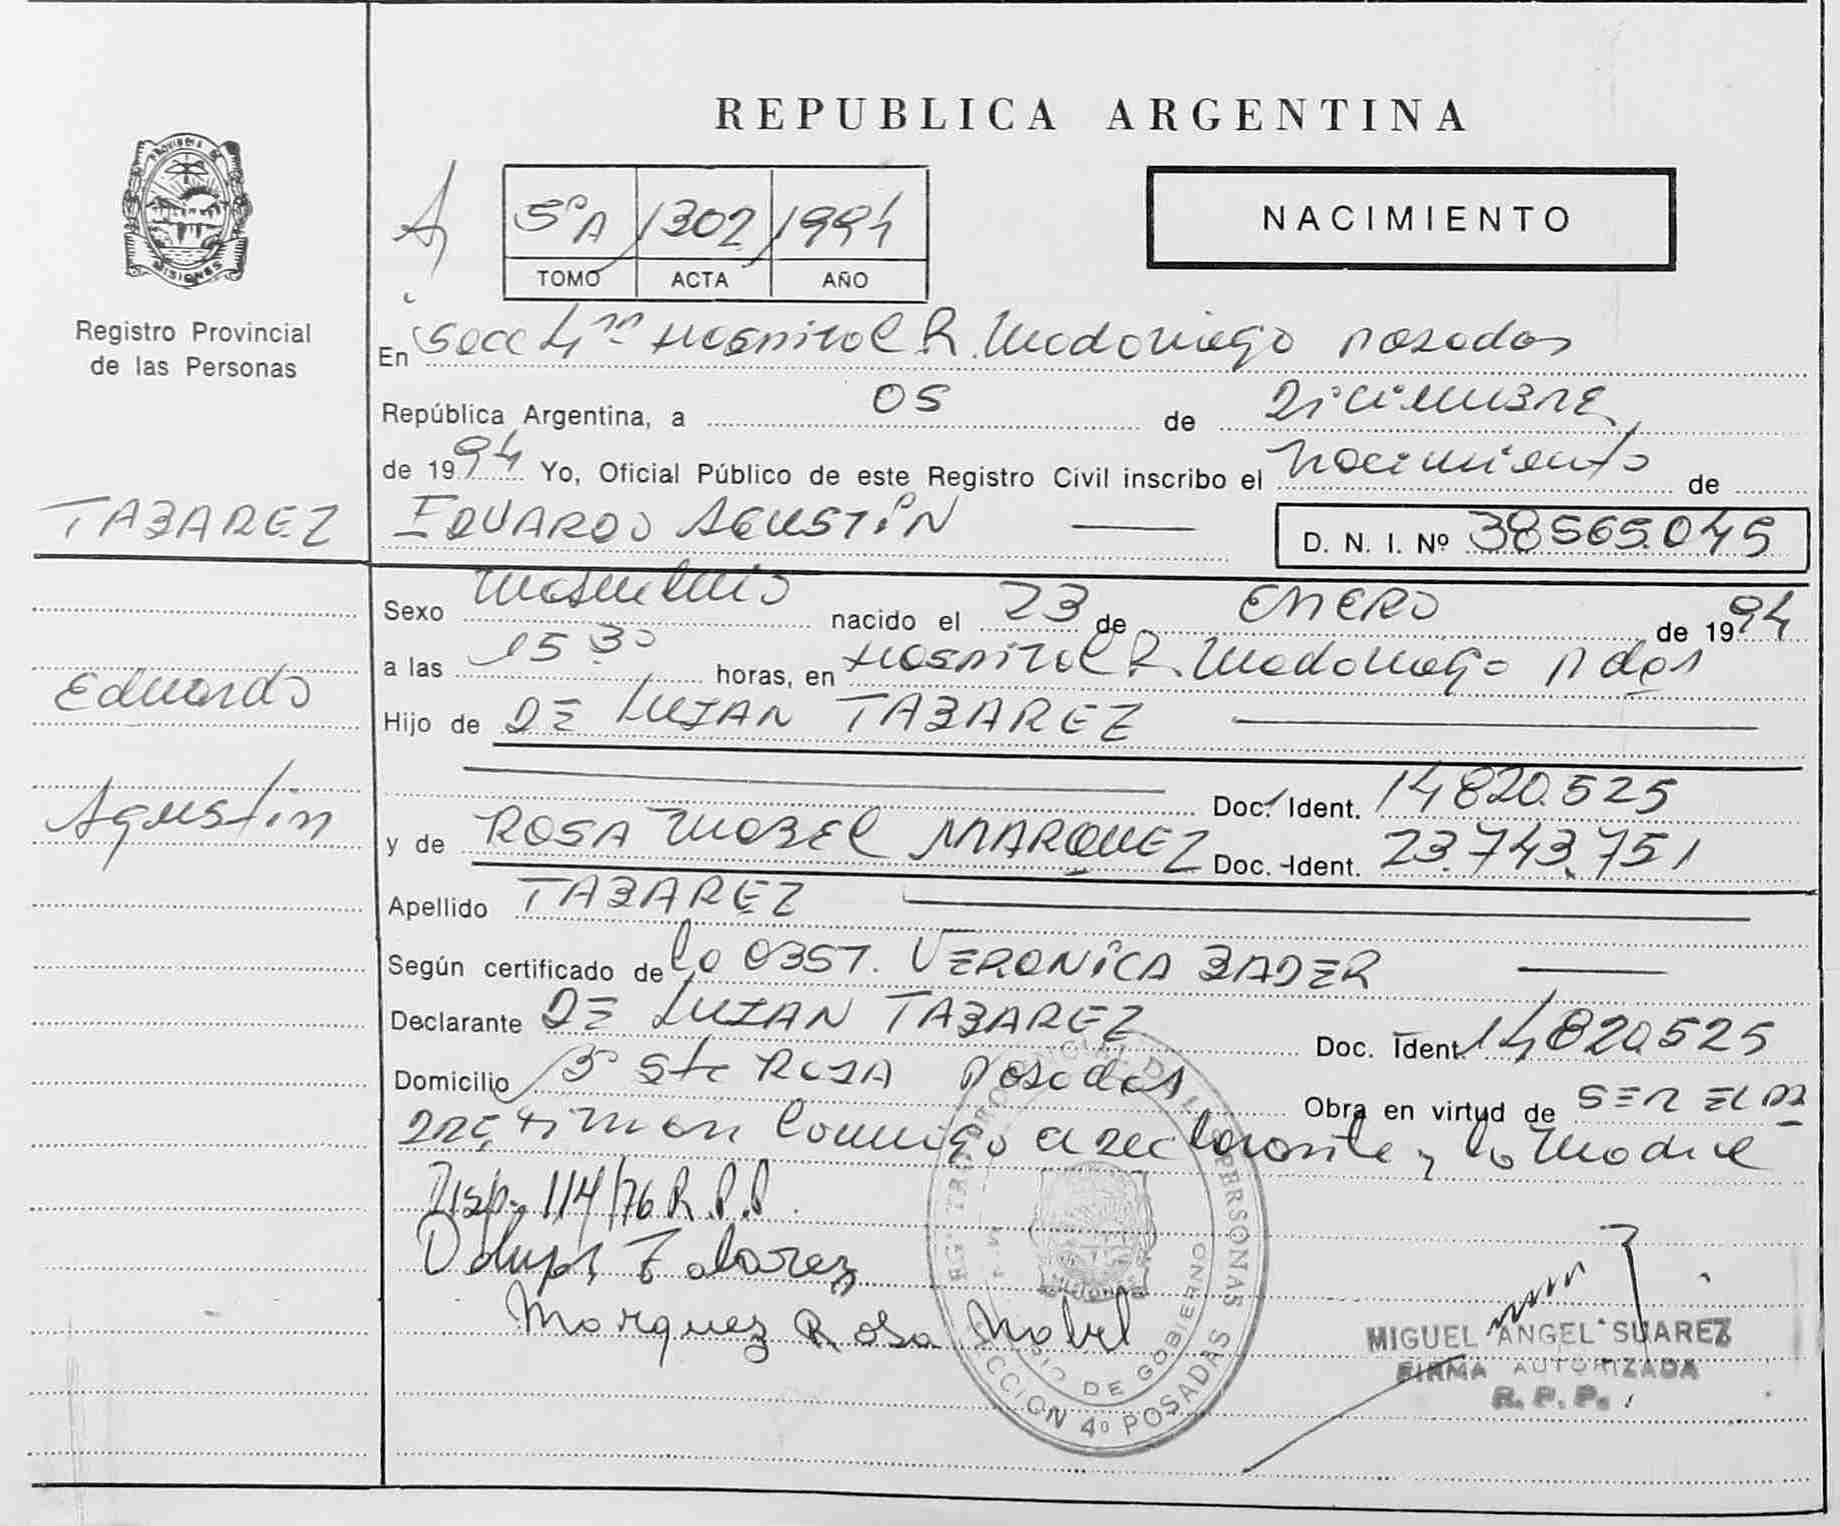 REPUBLICA ARGENTINA
PROVINCIA DE
MISIONES
Registro Provincial
de las Personas
5º A 1302 1994
TOMO ACTA AÑO
NACIMIENTO
En Secc 4ta Hospital R. Madariaga Posadas
República Argentina, a 05 de Diciembre
de 1994 Yo, Oficial Público de este Registro Civil inscribo el Nacimiento de
TABAREZ EDUARDO AGUSTIN D. N. I. Nº 38565.045
Sexo Masculino nacido el 23 de ENERO de 1994
a las 15 30 horas, en Hospital R. Madariaga Pdas
Eduardo
Hijo de DE LUJAN TABAREZ
Doc. Ident. 14820.525
Agustin
y de ROSA MABEL MARQUEZ Doc. Ident. 23.743.751
Apellido TABAREZ
Según certificado de la OBST. VERONICA BADER
Declarante DE LUJAN TABAREZ Doc. Ident 14820525
Domicilio Bº Sta ROSA Posadas Obra en virtud de SER EL
firman conmigo el declarante y la Madre
Disp. 114/76 R.P.P
Tabarez
Marquez Rosa Mabel
REGISTRO PROVINCIAL DE LAS PERSONAS
DE GOBIERNO
SECCION 4º POSADAS
MIGUEL ANGEL SUAREZ
FIRMA AUTORIZADA
R. P. P.